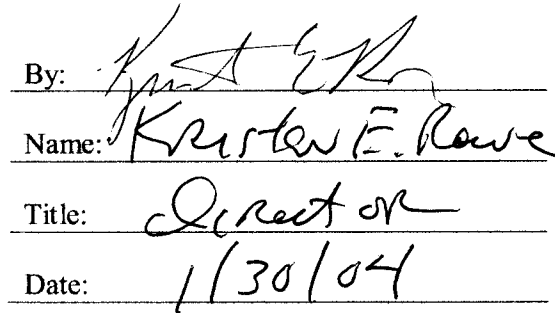 By:
Name: Kristen E. Rowe
Title: Director
Date: 1/30/04